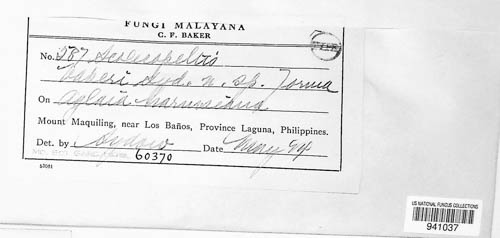 FUNGI MALAYANA
C. F. BAKER
No. 287 Scolecopeltis
Bakeri Syd. n. sp. Forma
On Aglaia
Mount Maquiling, near Los Baños, Province Laguna, Philippines.
Det. by Sydow Date May
60370
US NATIONAL FUNGUS COLLECTIONS
941037